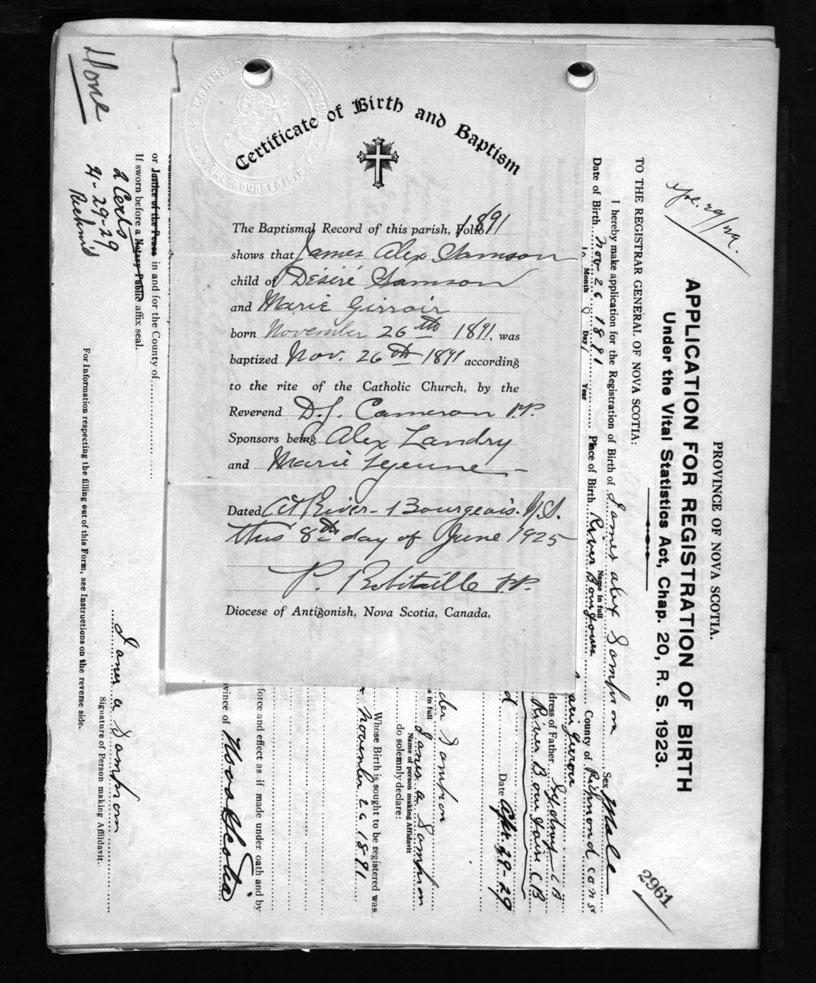 Certificate of Birth and Baptism
The Baptismal Record of this parish, Folio 1891
shows that James Alex Samson
child of Désiré Samson
and Marie Girroir
born November 26th 1891, was
baptized Nov. 26th 1891 according
to the rite of the Catholic Church, by the
Reverend D. J. Cameron P.P.
Sponsors being Alex Landry
and Marie Lejeune
Dated At River-Bourgeois. N.S.
this 8th day of June 1925
P. Robitaille P.P.
Diocese of Antigonish, Nova Scotia, Canada.
PROVINCE OF NOVA SCOTIA.
APPLICATION FOR REGISTRATION OF BIRTH
Under the Vital Statistics Act, Chap. 20, R. S. 1923.
2961
TO THE REGISTRAR GENERAL OF NOVA SCOTIA:
I hereby make application for the Registration of Birth of James Alex Sampson Sex Male
Name in full
Date of Birth Nov-26 1891 Place of Birth River Bourgeois County of Richmond
Month Day Year
dress of Father Sydney CB
River Bourgeois CB
Date Apr 29-29
der Sampson
e in full
James A Sampson
Name of person making Affidavit
do solemnly declare:
Whose Birth is sought to be registered was
November 26 1891
force and effect as if made under oath and by
vince of Nova Scotia
or Justice of the Peace in and for the County of
If sworn before a Notary Public affix seal.
James A Sampson
Signature of Person making Affidavit.
For Information respecting the filling out of this Form, see Instructions on the reverse side.
Done
2 Certs
4-29-29
Richm'd